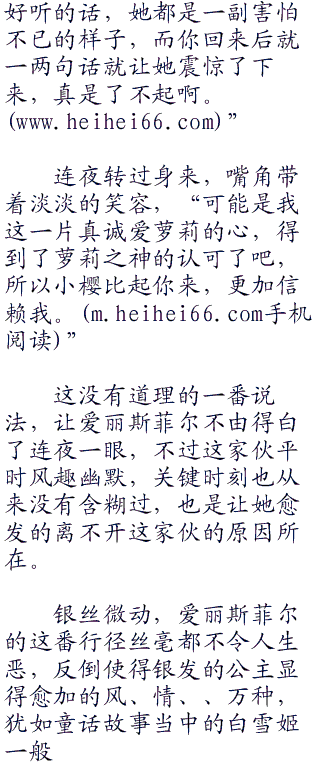 好听的话，她都是一副害怕
不已的样子，而你回来后就
一两句话就让她震惊了下
来，真是了不起啊。
(www.heihei66.com)”
连夜转过身来，嘴角带
着淡淡的笑容，“可能是我
这一片真诚爱萝莉的心，得
到了萝莉之神的认可了吧，
所以小樱比起你来，更加信
赖我。(m.heihei66.com手机
阅读)”
这没有道理的一番说
法，让爱丽斯菲尔不由得白
了连夜一眼，不过这家伙平
时风趣幽默，关键时刻也从
来没有含糊过，也是让她愈
发的离不开这家伙的原因所
在。
银丝微动，爱丽斯菲尔
的这番行径丝毫都不令人生
恶，反倒使得银发的公主显
得愈加的风、情、、万种，
犹如童话故事当中的白雪姬
一般